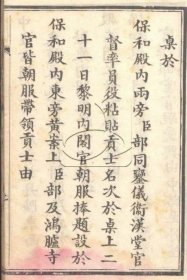 桌於
保和殿內兩旁臣部同鑾儀衛漢堂官
督率員役粘貼貢士名次於桌上二
十一日黎明內閣官朝服捧題設於
保和殿內東旁黃案上臣部及鴻臚寺
官皆朝服帶領貢士由